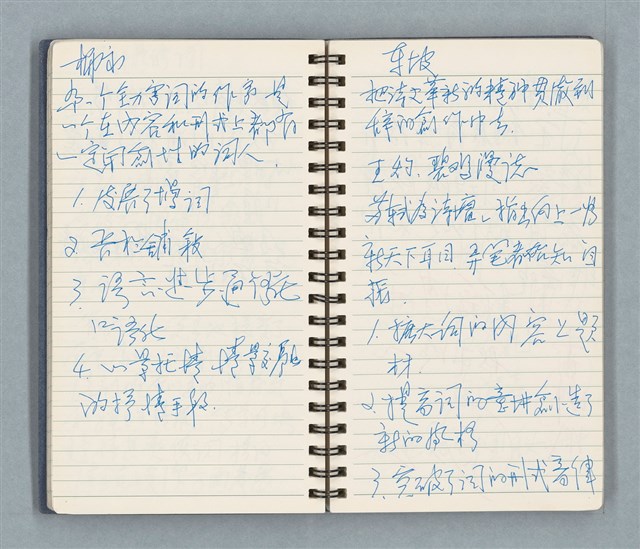 柳永
第一个专写词的作家是
一个在内容和形式上都有
一定开创性的词人.
1. 发展了慢词
2. 长于铺叙
3. 语言进步通俗化
口语化
4. 以景托情 情景交融
的抒情手段.
东坡
把诗文革新的精神贯彻到
辞的创作中去.
王灼. 碧鸡漫志
苏轼为诗
指出向上一路
新天下耳目. 弄笔者始知自
振.
1. 擴大词的内容与题
材.
2. 提高词的意境創造了
新的风格
3. 突破了词的形式音律